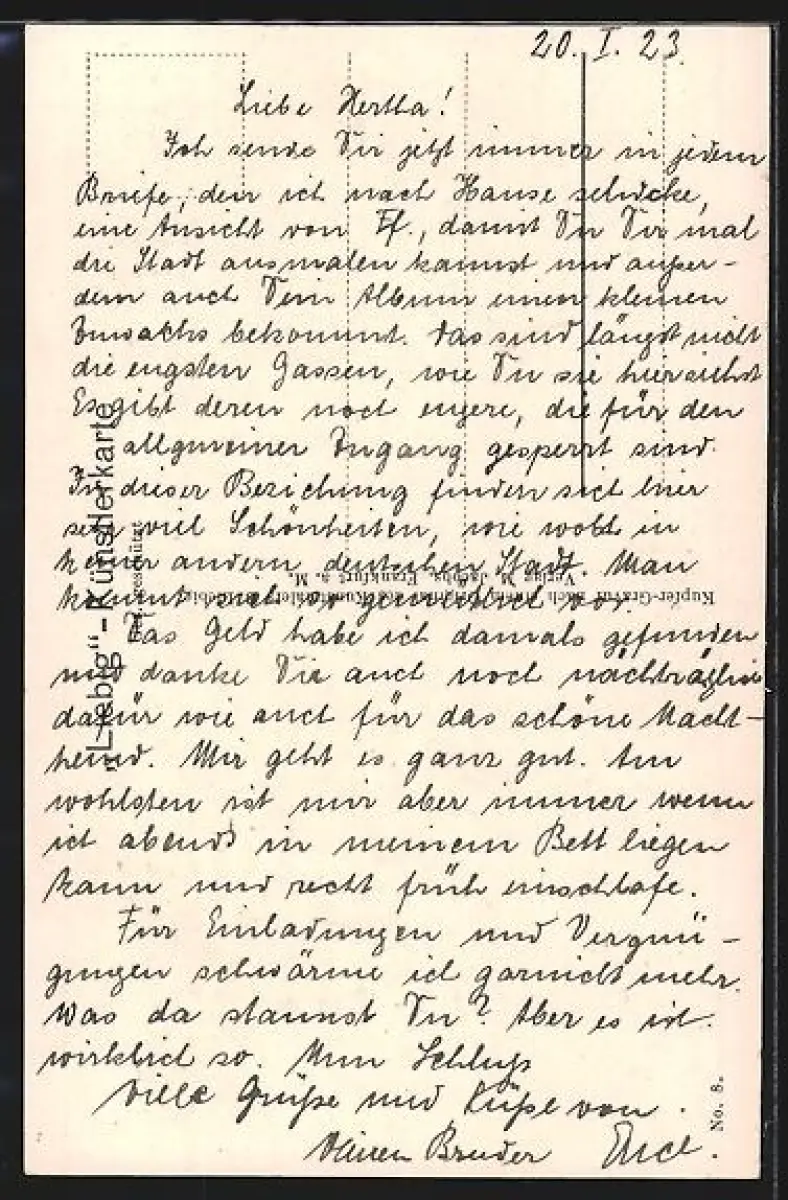 20. I. 23
Liebe Hertha!
Ich sende Dir jetzt immer in jedem
Briefe, den ich nach Hause schicke,
eine Ansicht von Ff., damit Du Dir mal
die Stadt ausmalen kannst und außer-
dem auch Dein Album einen kleinen
Zuwachs bekommt. Das sind längst nicht
die engsten Gassen, wie Du sie hier siehst
Es gibt deren noch engere, die für den
allgemeinen Zugang gesperrt sind.
In dieser Beziehung finden sich hier
sehr viel Schönheiten, wie wohl in
keiner andern deutschen Stadt. Man
kommt sich so vor.
Das Geld habe ich damals gefunden
und danke Dir auch noch nachträglich
dafür wie auch für das schöne Nacht-
hemd. Mir geht es ganz gut. Am
wohlsten ist mir aber immer wenn
ich abends in meinem Bett liegen
kann und recht früh einschlafe.
Für Einladungen und Vergnü-
gungen schwärme ich garnicht mehr.
Was da staunst Du? Aber es ist
wirklich so. Nun Schluß
Viele Grüße und Küße von
Deinen Bruder
„Liebig“-Künstlerkarte
geschützt
Kupfer-Gravur nach
Verlag M. Jacobs, Frankfurt a. M.
No. 8.